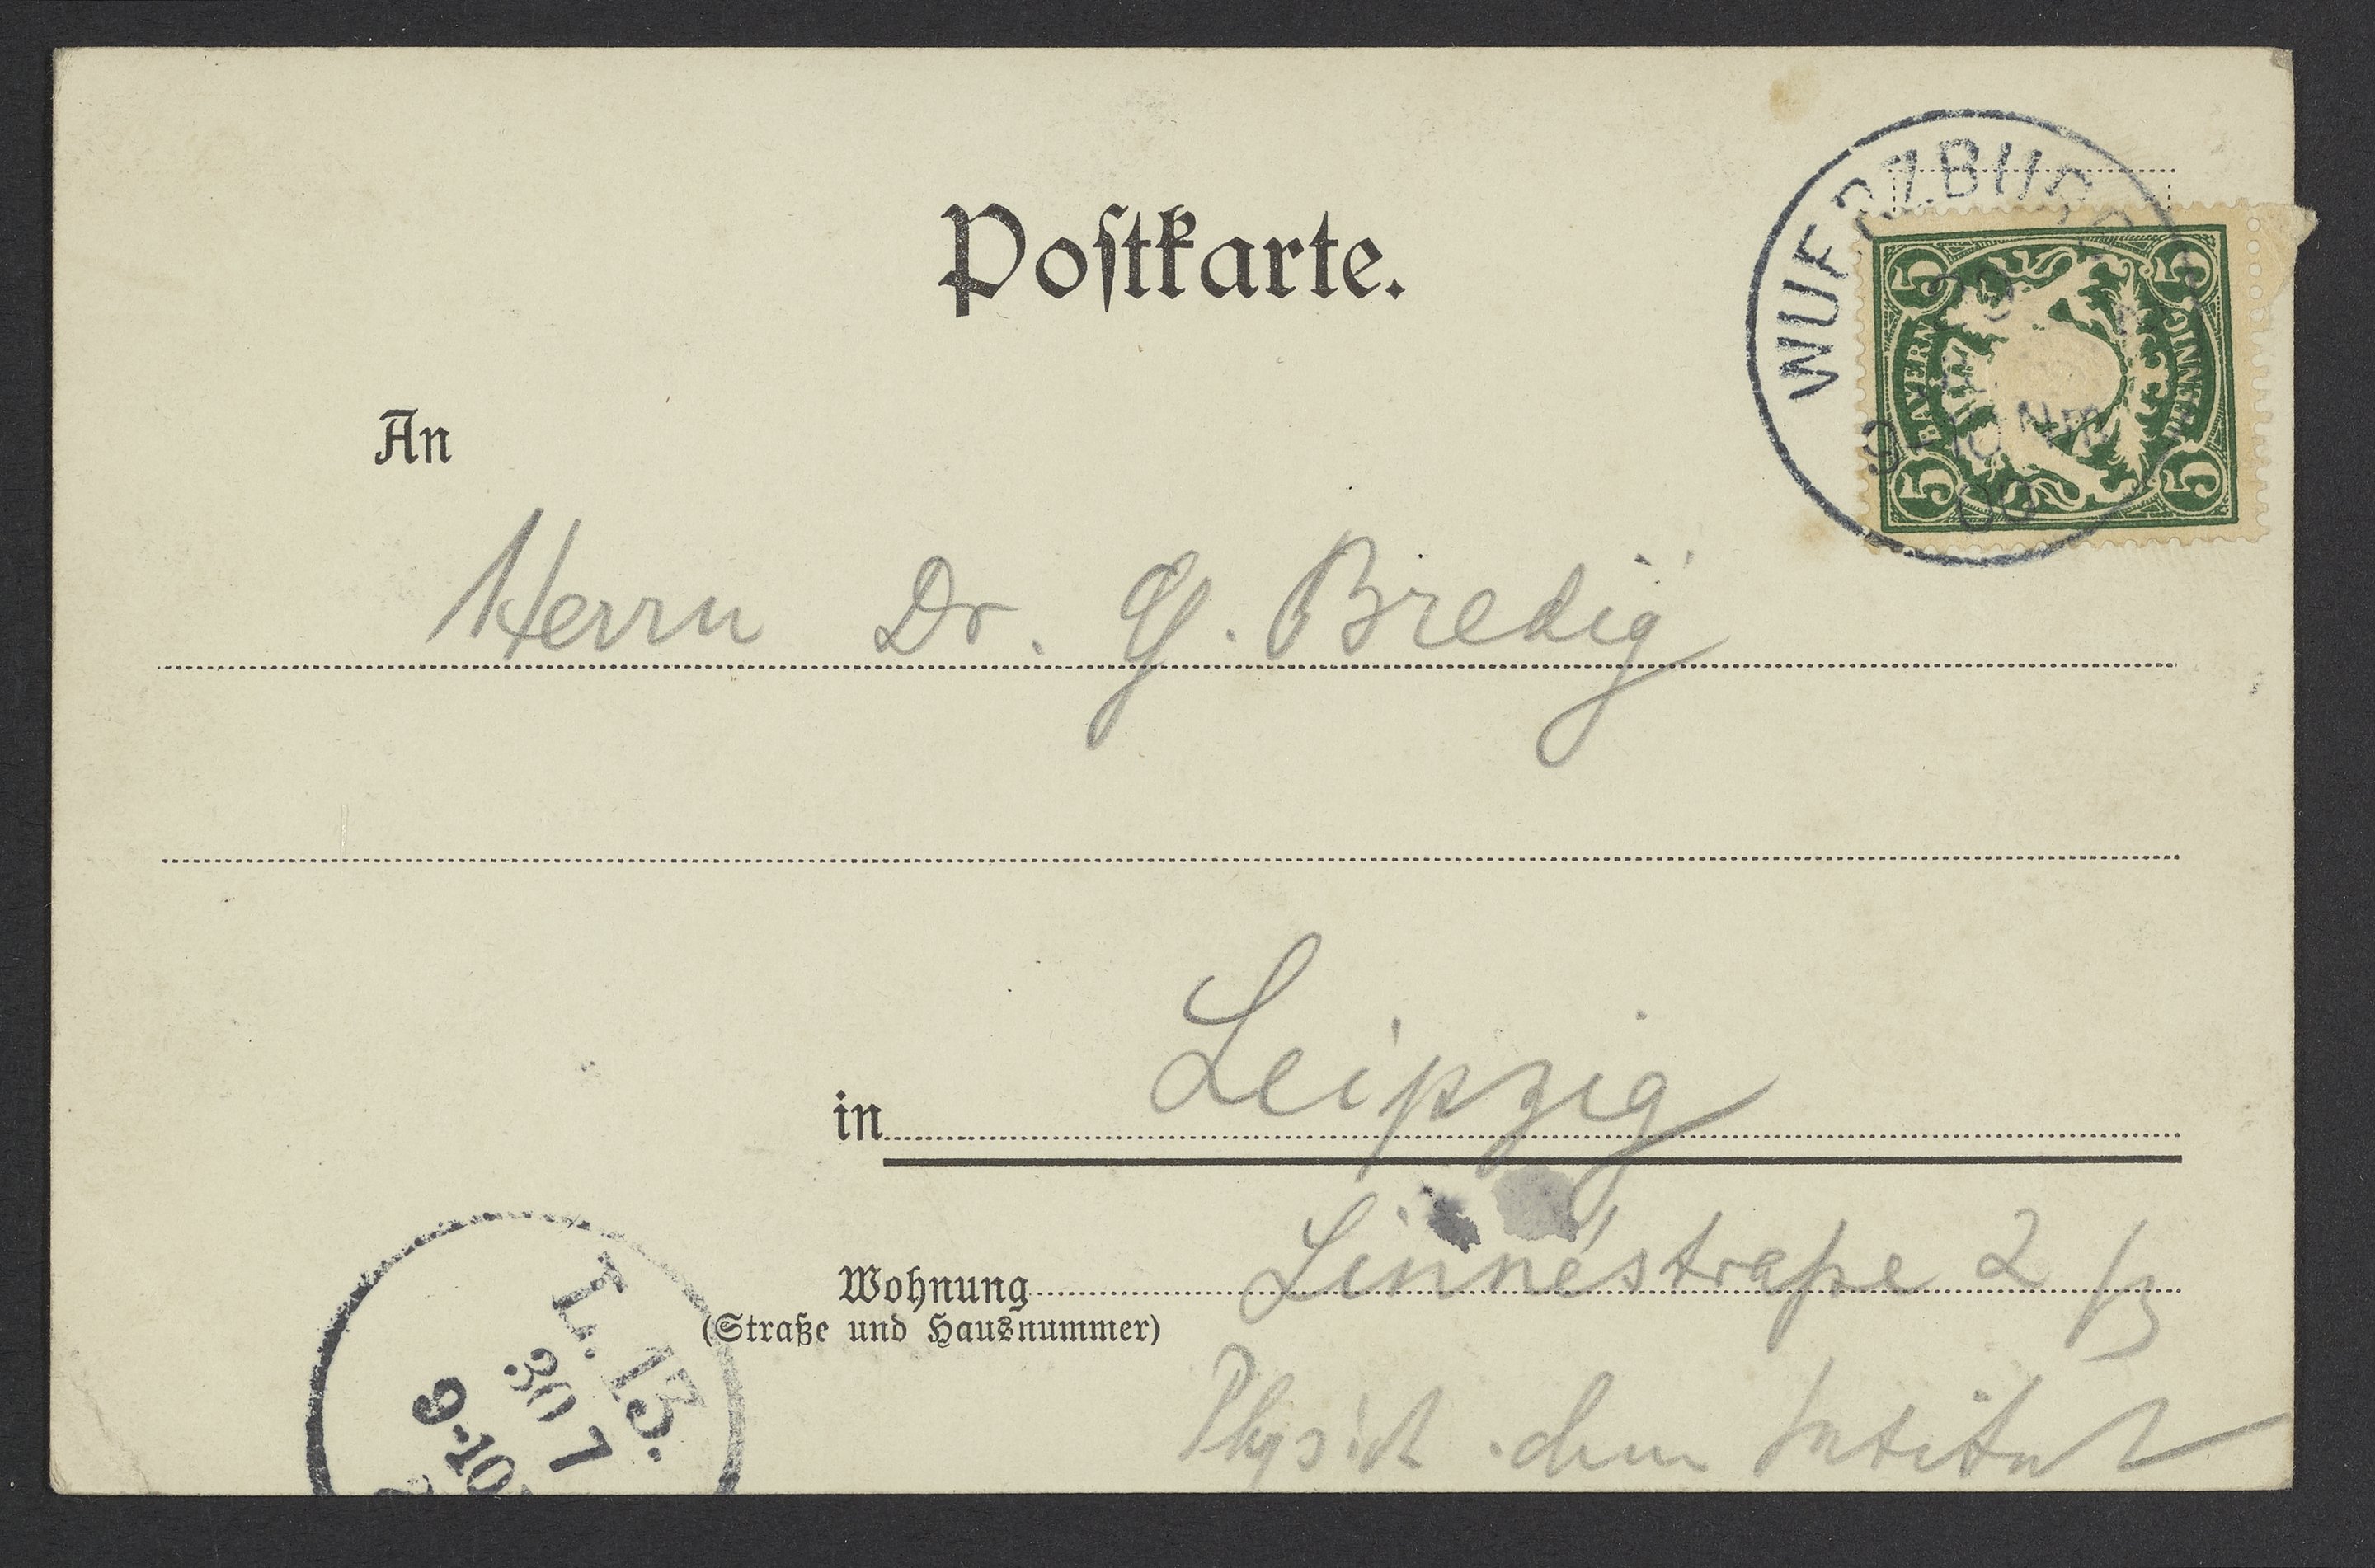 Postkarte.
WUERZBURG
5 5
BAYERN PFENNIG
5 5
NM
00
An
Herrn Dr. G. Bredig
in Leipzig
Wohnung Linnéstraße 2/3
(Straße und Hausnummer)
Physik.-chem Institut
L. 13.
30 7
9-10